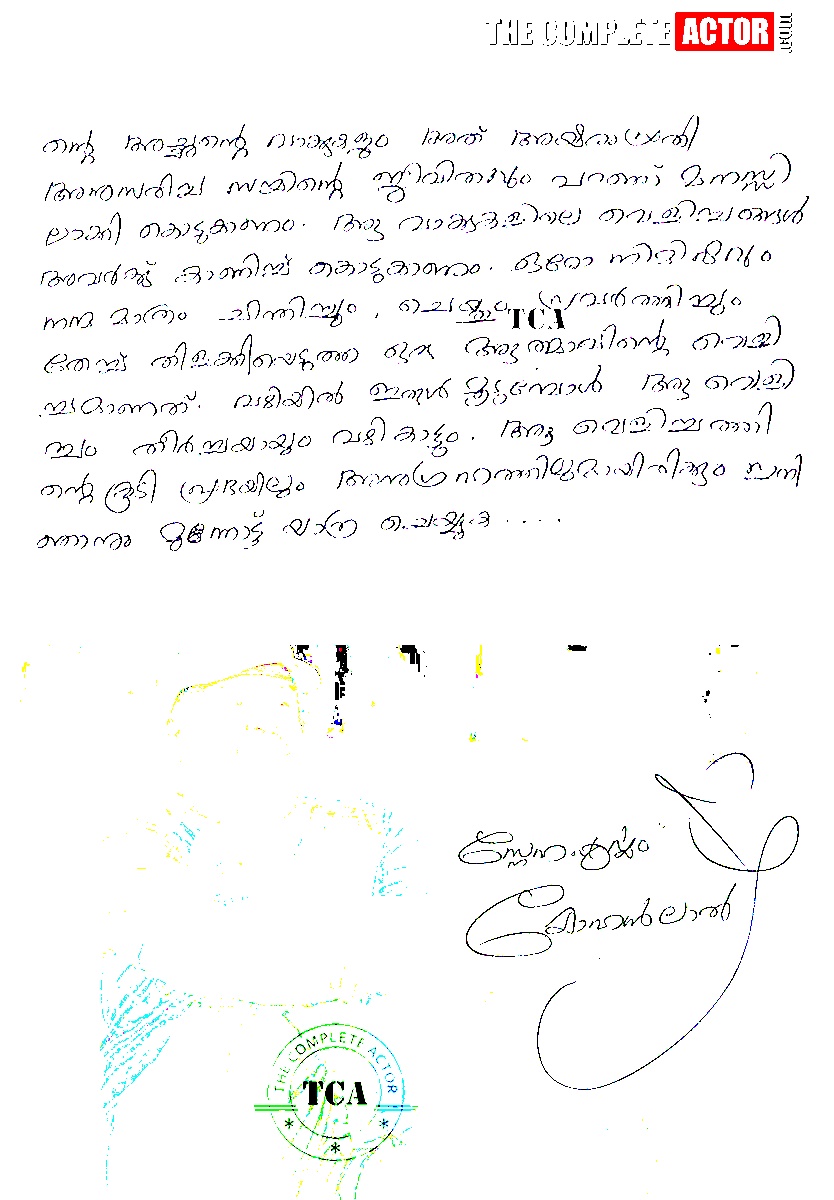 THE COMPLETE ACTOR
തന്റെ അച്ഛന്റെ വാക്കുകളും അത് അക്ഷരംപ്രതി
അനുസരിച്ച മകന്റെ ജീവിതവും പറഞ്ഞ് മനസ്സി
ലാക്കി കൊടുക്കണം. ആ വാക്കുകളിലെ വെളിച്ചങ്ങൾ
അവർക്ക് കാണിച്ച് കൊടുക്കണം. ഓരോ നിമിഷവും
നന്മ മാത്രം ചിന്തിച്ചും, ചെയ്തും, പ്രവർത്തിച്ചും
TCA
തേച്ച് തിളക്കിയെടുത്ത ഒരു ആത്മാവിന്റെ വെളി
ച്ചമാണത്. വഴിയിൽ ഇരുൾ മൂടുമ്പോൾ ആ വെളി
ച്ചം തീർച്ചയായും വഴികാട്ടും. ആ വെളിച്ചത്തി
ന്റെ കൂടി പ്രഭയിലും അനുഗ്രഹത്തിലുമായിരിക്കും ഇനി
ഞാനും മുന്നോട്ട് യാത്ര ചെയ്യുക ....
സ്നേഹപൂർവ്വം
മോഹൻലാൽ
THE COMPLETE ACTOR
TCA